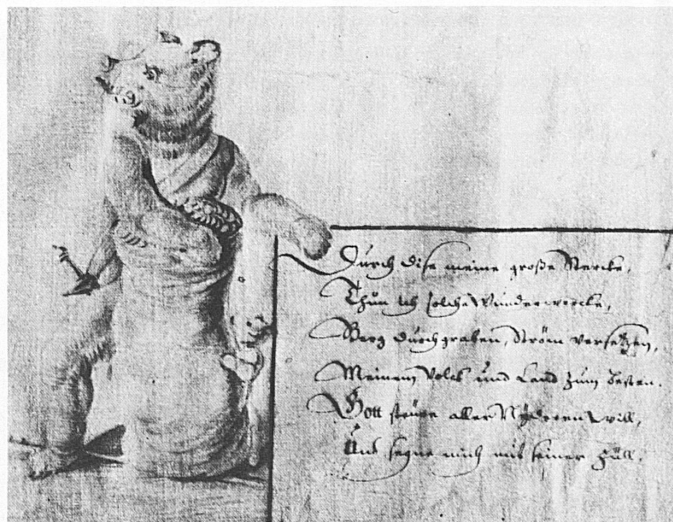 Durch dise meine große Stercke,
Thun ich solche Wunderwercke,
Berg durchgraben, Ström versetzen,
Meinem Volck und Land zum besten.
Gott steure aller will,
Und segne mich mit seiner Füll.